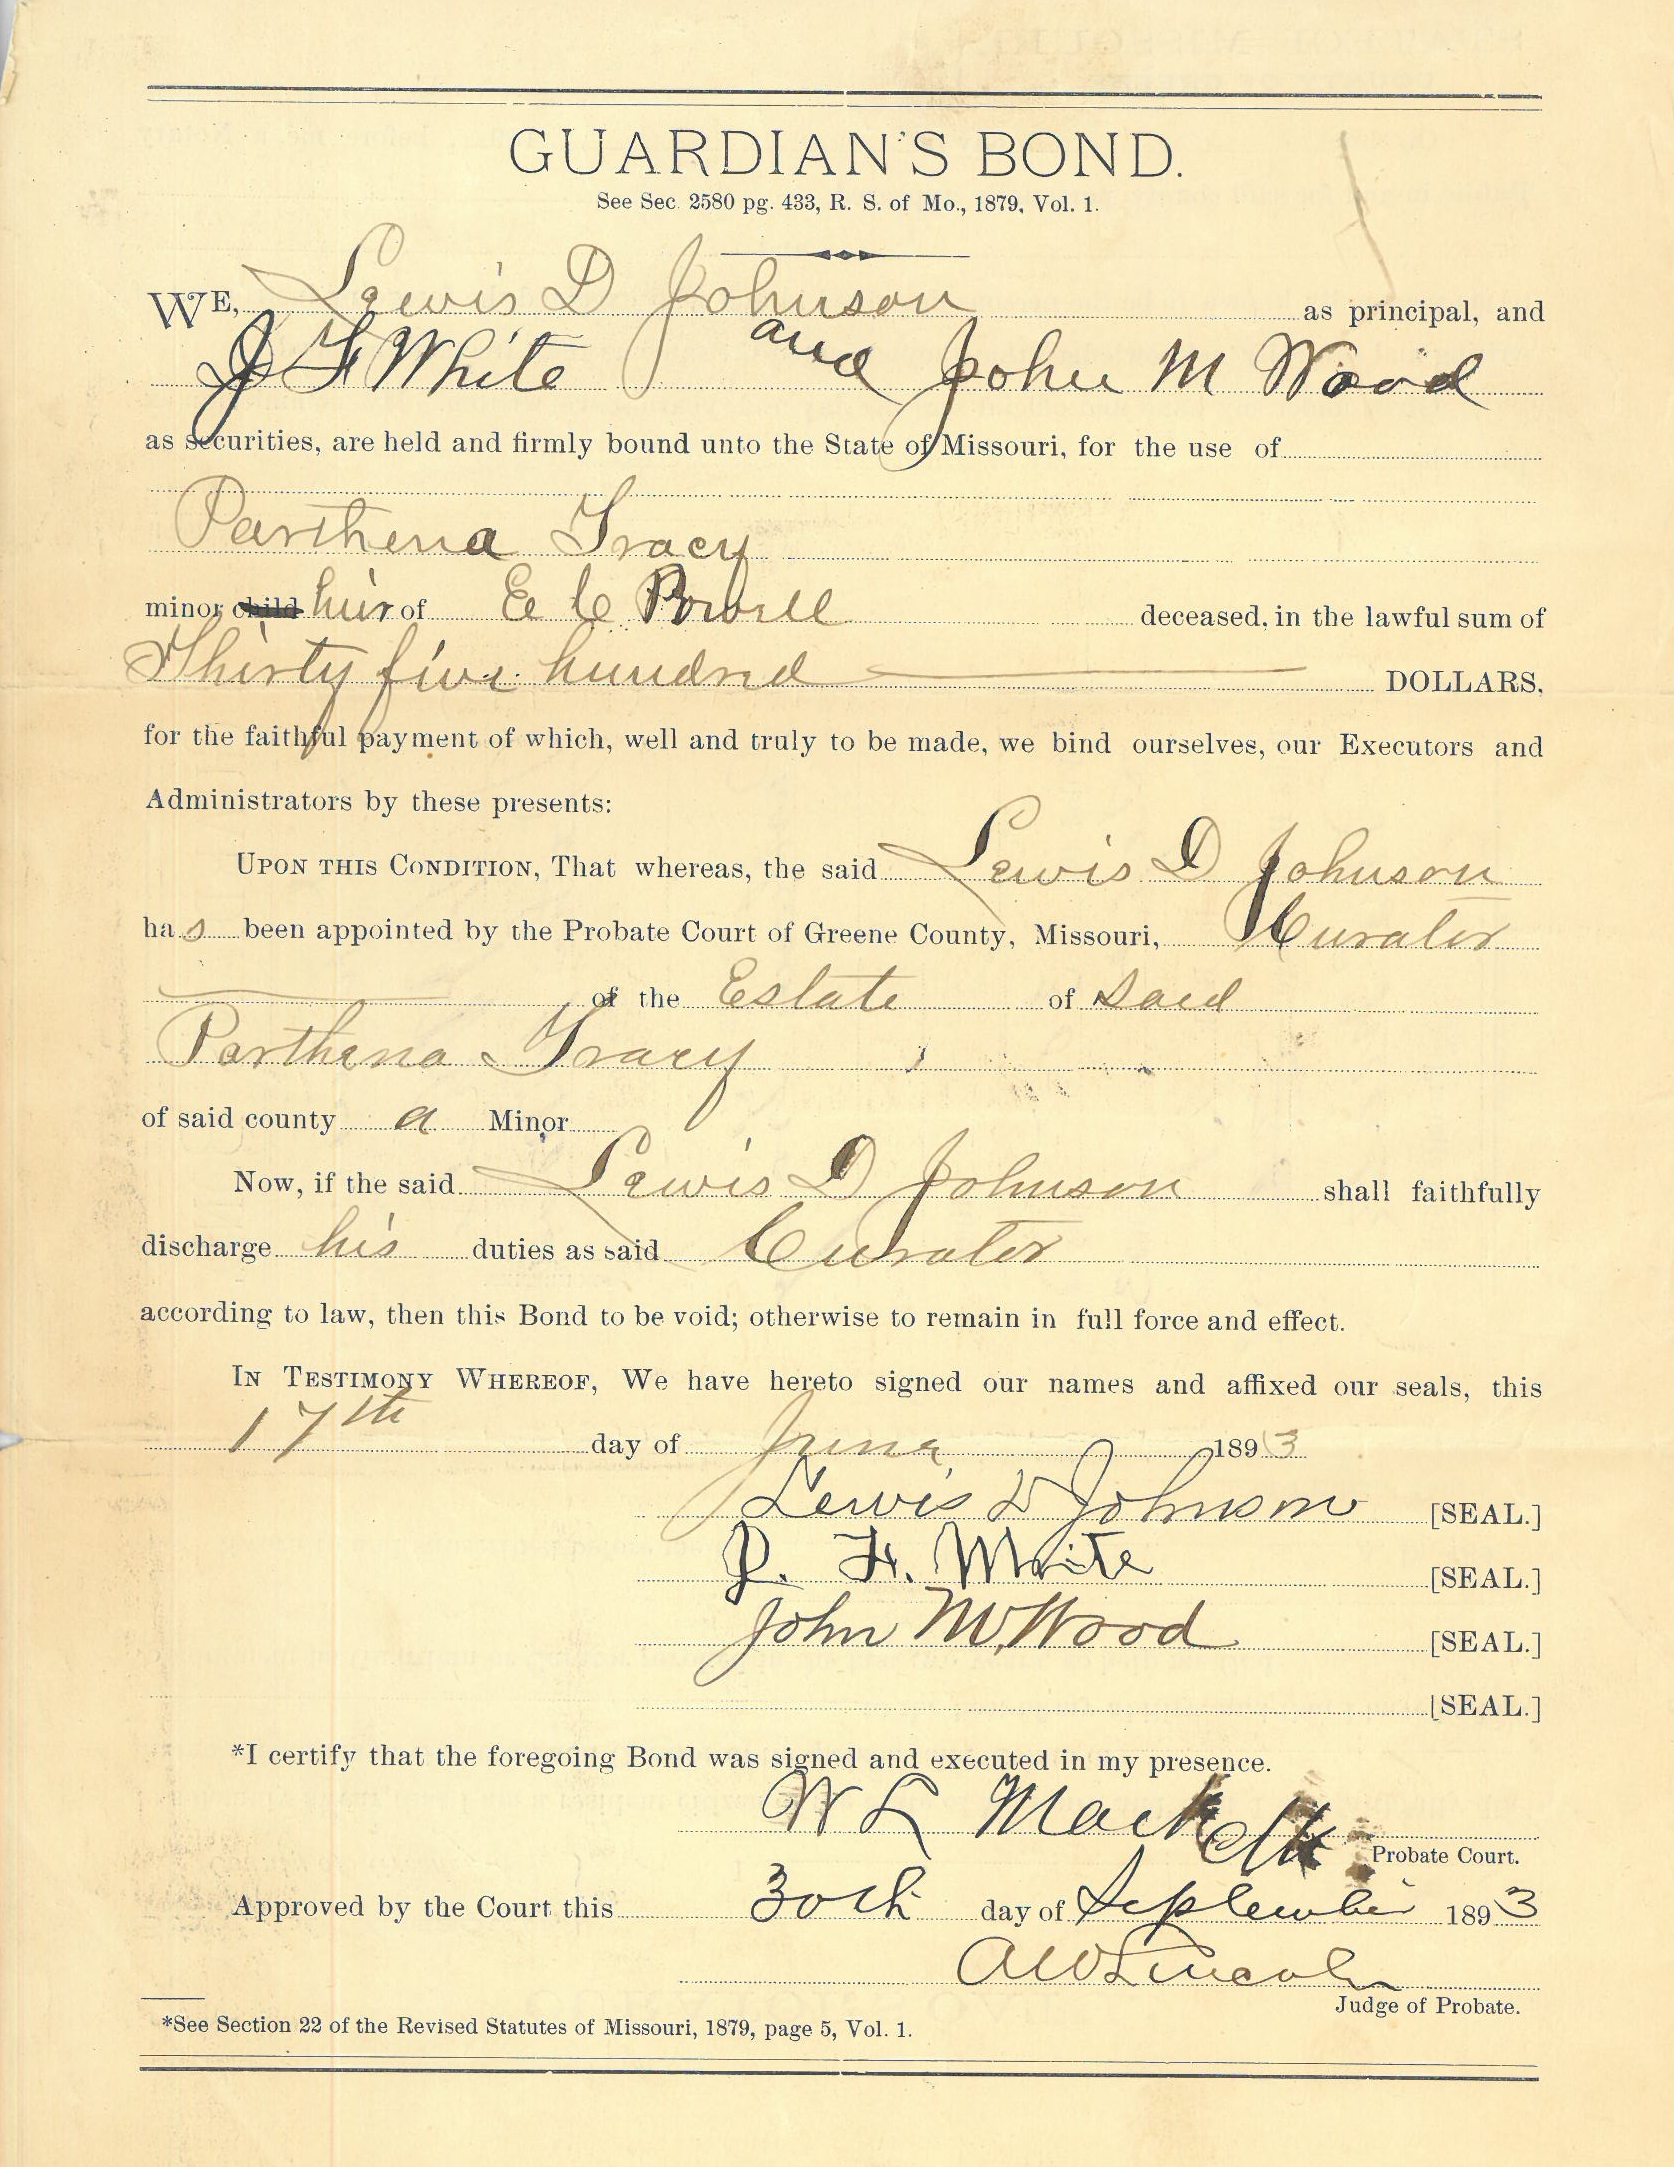 GUARDIAN'S BOND.
See Sec. 2580 pg. 433, R. S. of Mo., 1879, Vol. 1.
WE, Lewis D Johnson as principal, and
J F White and John M Wood
as securities, are held and firmly bound unto the State of Missouri, for the use of
Parthena Tracy
minor child heir of E C Powell deceased, in the lawful sum of
Thirty five hundred DOLLARS,
for the faithful payment of which, well and truly to be made, we bind ourselves, our Executors and
Administrators by these presents:
UPON THIS CONDITION, That whereas, the said Lewis D Johnson
has been appointed by the Probate Court of Greene County, Missouri, Curator
of the Estate of said
Parthena Tracy
of said county a Minor
Now, if the said Lewis D Johnson shall faithfully
discharge his duties as said Curator
according to law, then this Bond to be void; otherwise to remain in full force and effect.
IN TESTIMONY WHEREOF, We have hereto signed our names and affixed our seals, this
17th day of June 1893
Lewis D Johnson [SEAL.]
J. F. White [SEAL.]
John M. Wood [SEAL.]
[SEAL.]
*I certify that the foregoing Bond was signed and executed in my presence.
W L Mack Clk
Probate Court.
Approved by the Court this 30th day of September 1893
A W Lincoln
Judge of Probate.
*See Section 22 of the Revised Statutes of Missouri, 1879, page 5, Vol. 1.